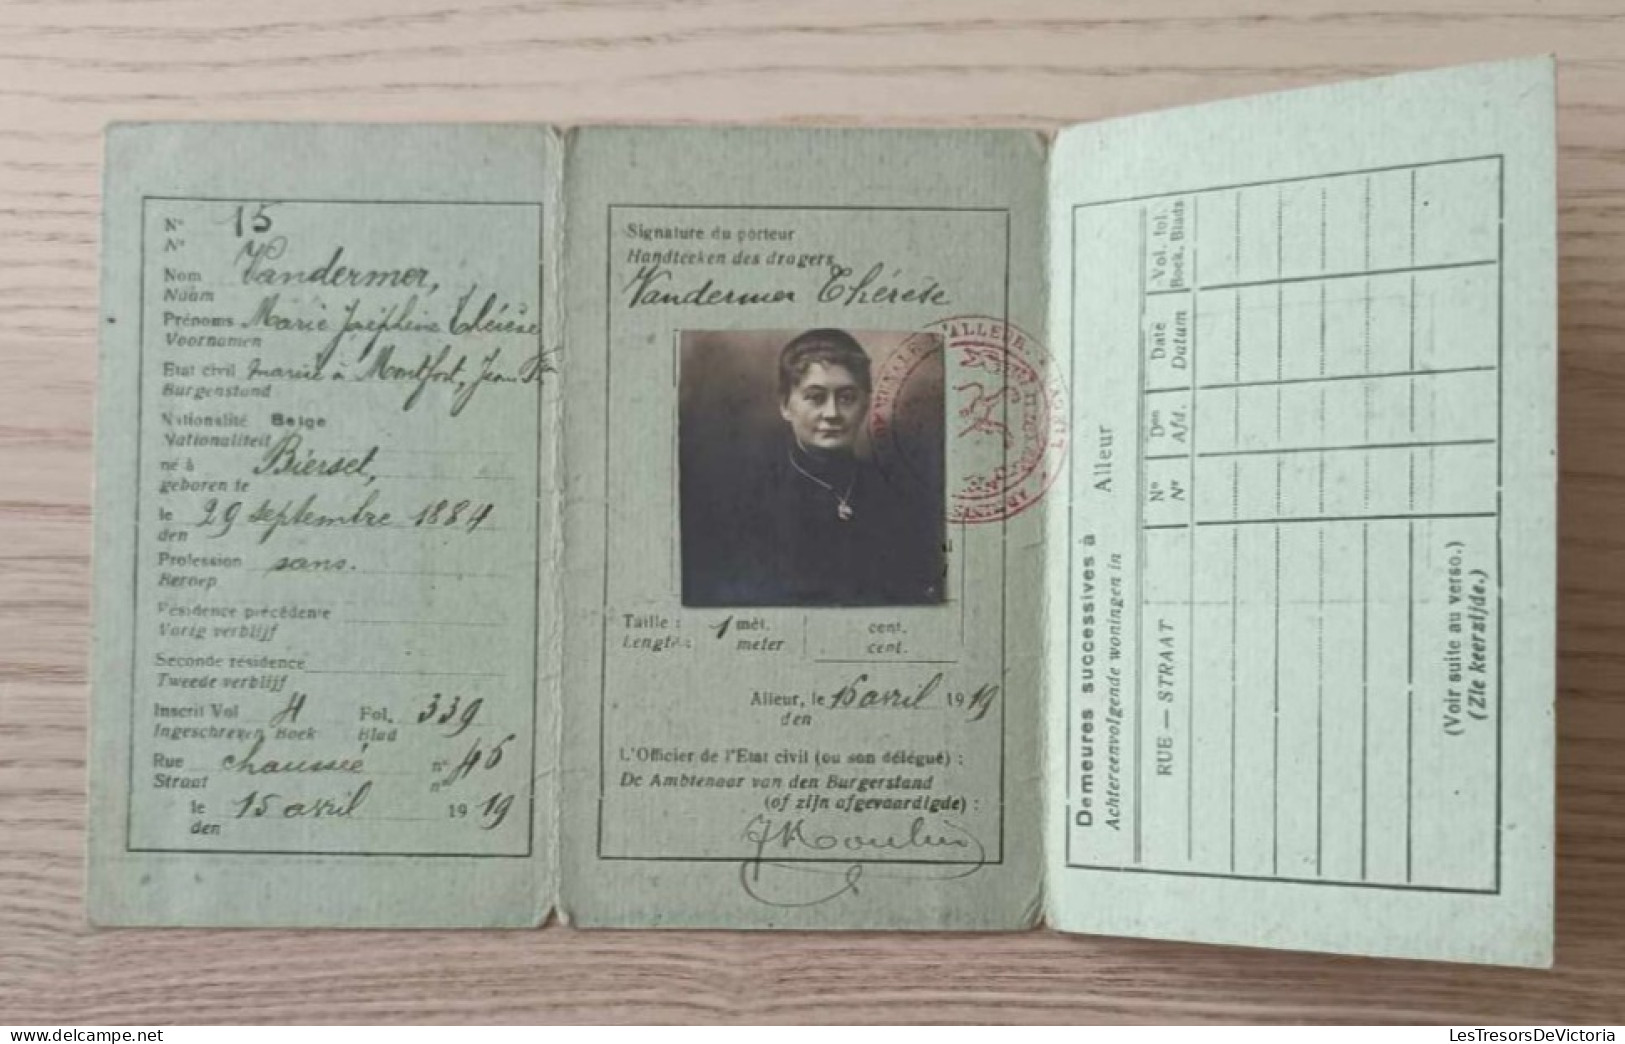 N° 15
N°
Nom Vandermer,
Naam
Prénoms Marie Joséphine Thérèse
Voornamen
Etat civil mariée à Montfort, Jean
Burgenstand
Nationalité Belge
Nationaliteit
né à Bierset,
geboren te
le 29 septembre 1884
den
Profession sans.
Beroep
Résidence précédente
Vorig verblijf
Seconde résidence
Tweede verblijf
Inscrit Vol 4 Fol. 339
Ingeschreven Boek Blad
Rue chaussée n° 46
Straat n°
le 15 avril 1919
den
Signature du porteur
Handteeken des dragers
Vandermer Thérèse
ALLEUR.
LIEGE
Taille : 1 mèt. cent.
Lengte : meter cent.
Alleur, le 16 avril 1919
den
L'Officier de l'Etat civil (ou son délégué) :
De Ambtenaar van den Burgerstand
(of zijn afgevaardigde) :
Demeures successives à Alleur
Achtereenvolgende woningen in
RUE — STRAAT
N° Den Date Vol. fol.
Nr Afd. Datum Boek. Blads
(Voir suite au verso.)
(Zie keerzijde.)
LesTresorsDeVictoria